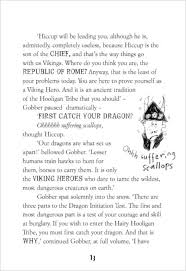 'Hiccup will be leading you, although he is,
admittedly, completely useless, because Hiccup is the
son of the CHIEF, and that's the way things go
with us Vikings. Where do you think you are, the
REPUBLIC OF ROME? Anyway, that is the least of
your problems today. You are here to prove yourself as
a Viking Hero. And it is an ancient tradition of
the Hooligan Tribe that you should –'
Gobber paused dramatically –
'FIRST CATCH YOUR DRAGON!'
Ohhhhhh suffering scallops,
thought Hiccup.
'Our dragons are what set us
apart!' bellowed Gobber. 'Lesser
humans train hawks to hunt for
them, horses to carry them. It is only
the VIKING HEROES who dare to tame the wildest,
most dangerous creatures on earth.'
Gobber spat solemnly into the snow. 'There are
three parts to the Dragon Initiation Test. The first and
most dangerous part is a test of your courage and skill
at burglary. If you wish to enter the Hairy Hooligan
Tribe, you must first catch your dragon. And that is
WHY,' continued Gobber, at full volume, 'I have
Oohh suffering
scallops
13